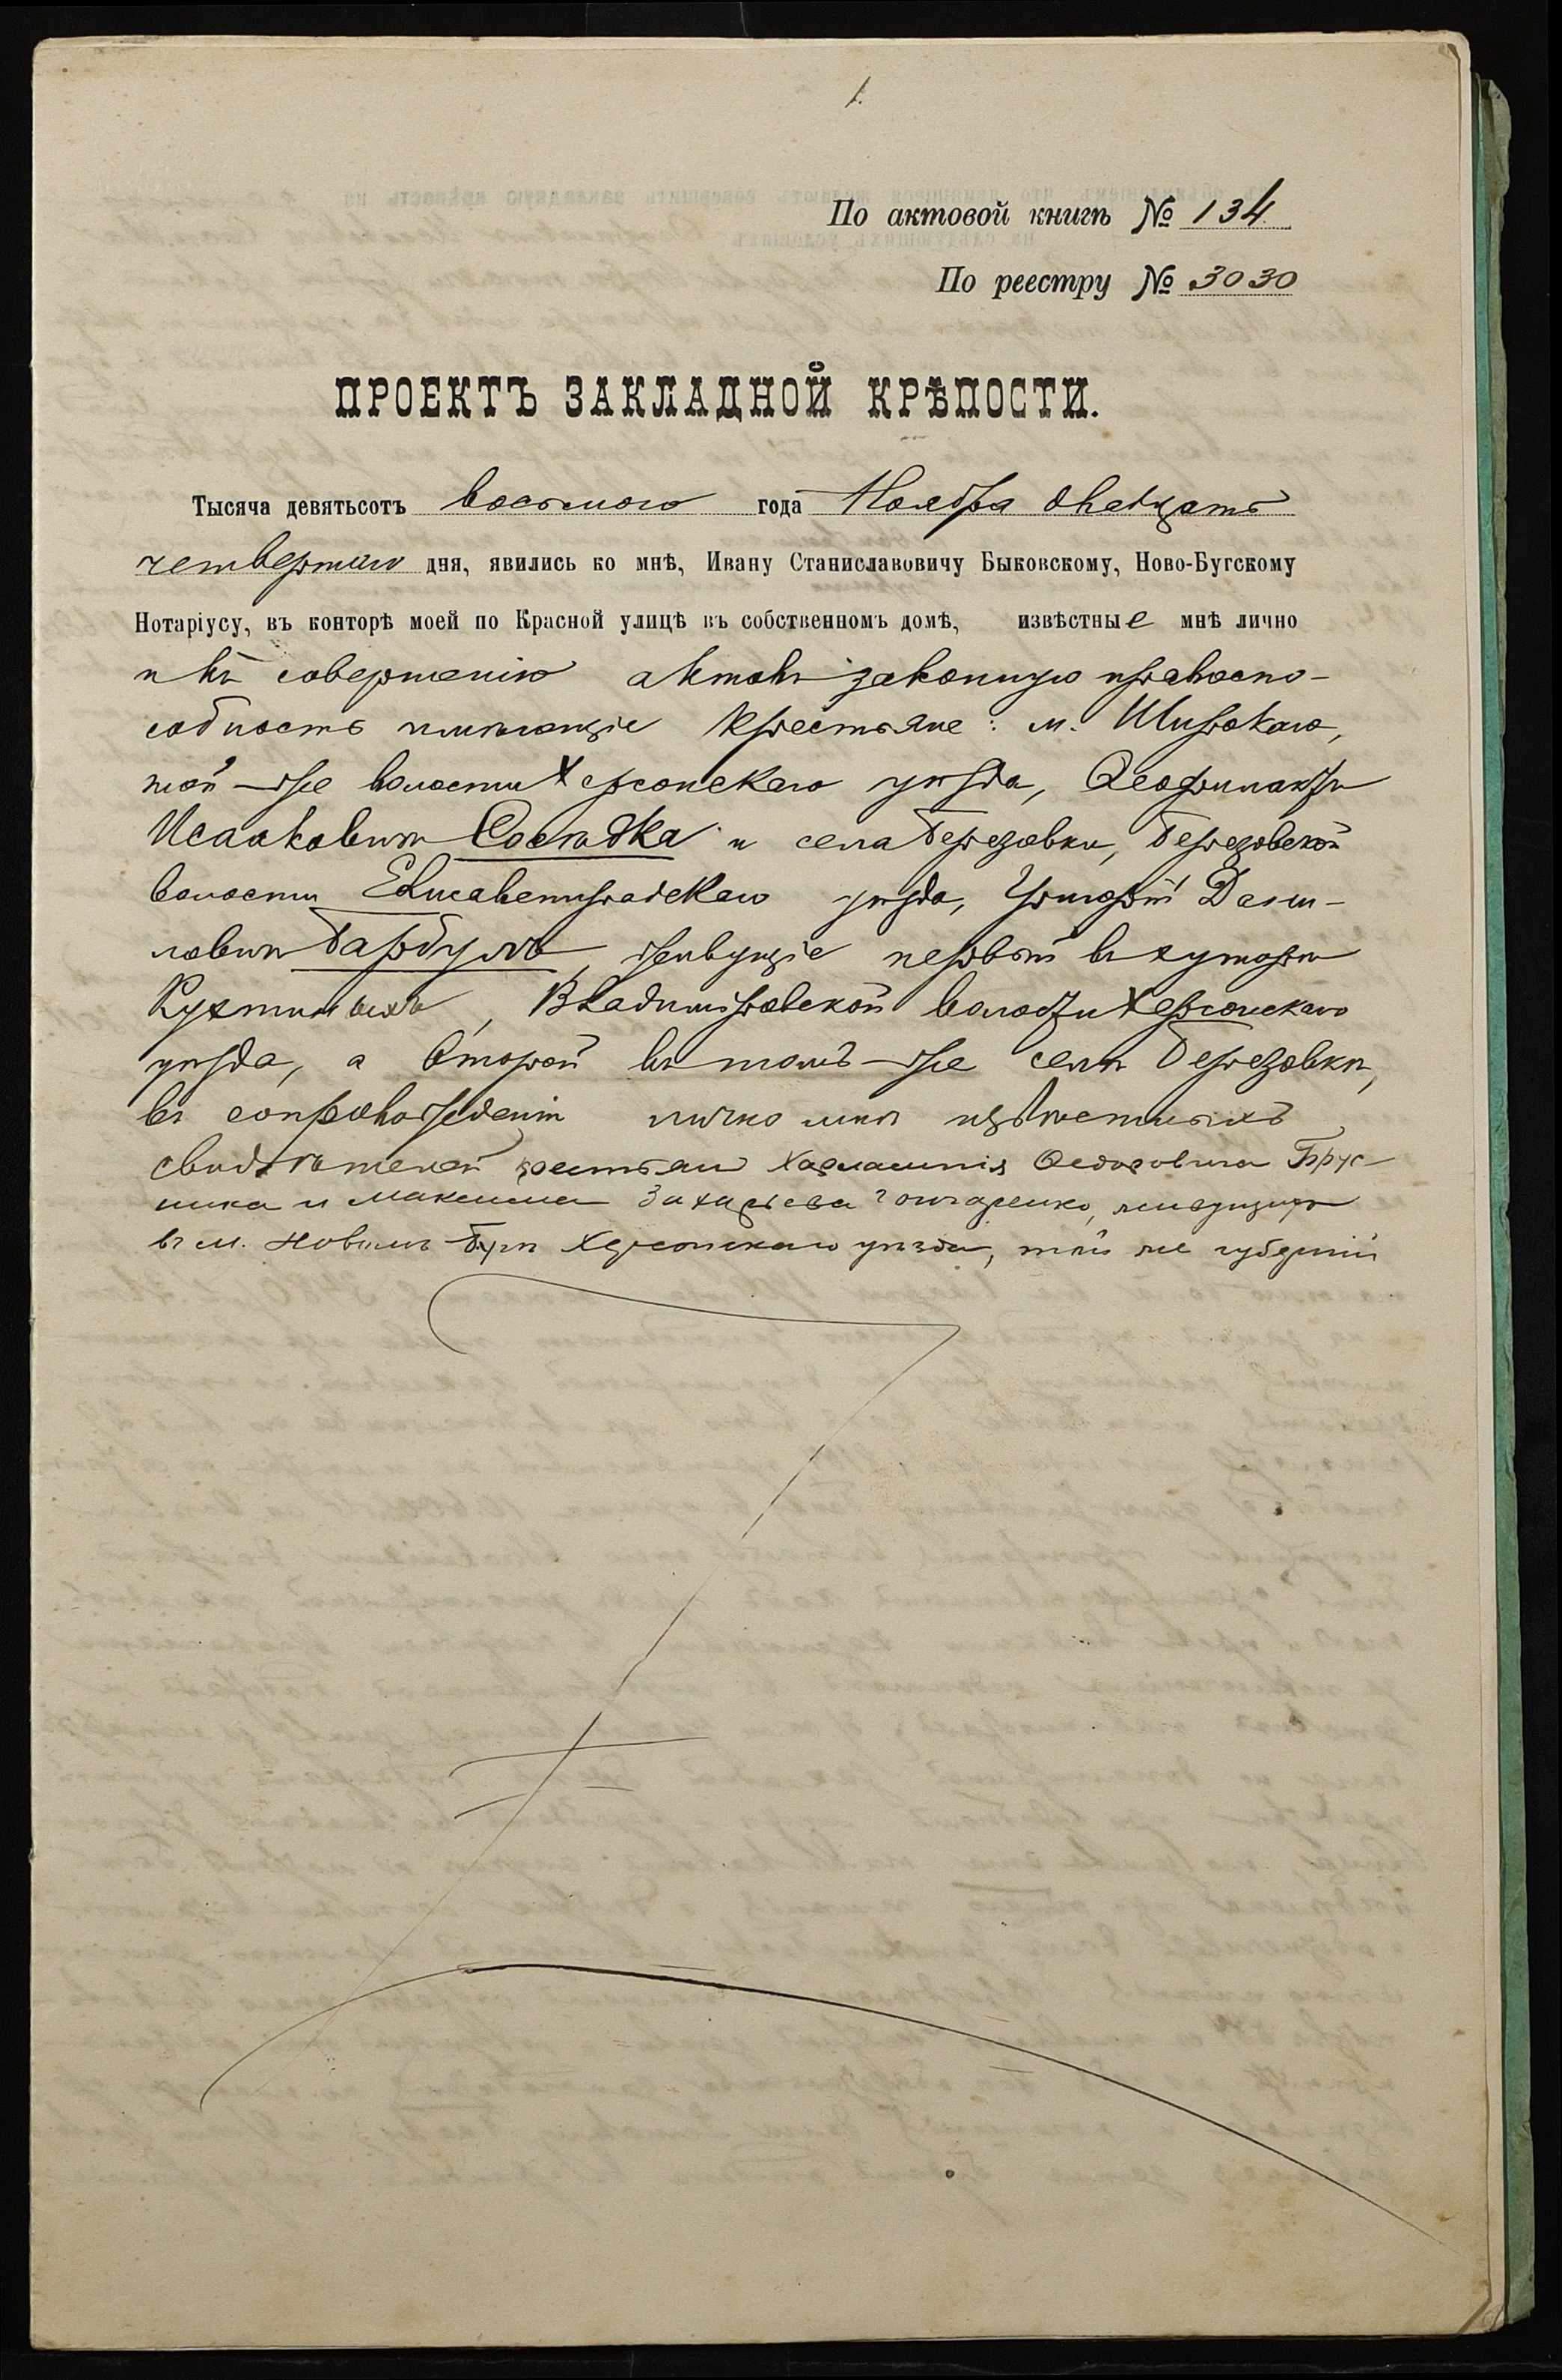 1.
По актовой книгѣ № 134
По реестру № 3030
ПРОЕКТЪ ЗАКЛАДНОЙ КРѢПОСТИ.
Тысяча девятьсотъ восьмого года Ноября двадцать
четвертаго дня, явились ко мнѣ, Ивану Станиславовичу Быковскому, Ново-Бугскому
Нотаріусу, въ конторѣ моей по Красной улицѣ въ собственномъ домѣ, извѣстные мнѣ лично
и къ совершенію актовъ законную правоспо-
собность имѣющіе крестьяне: м. Широкаго,
той-же волости Херсонскаго уѣзда, Ѳеофилактъ
Исааковичъ Сосѣдка и села Березовки, Березовской
волости Елисаветградскаго уѣзда, Григорій Дани-
ловичъ Барбулъ, живущіе первый въ хуторѣ
Владиміровской волости Херсонскаго
уѣзда, а второй въ томъ-же селѣ Березовкѣ,
въ сопровожденіи лично мнѣ извѣстныхъ
свидѣтелей крестьян Харлампія Ѳедоровича Брус-
ника и Максима Захарьева Гончаренко, живущихъ
въ м. Новомъ-Бугѣ Херсонскаго уѣзда, той же губерніи